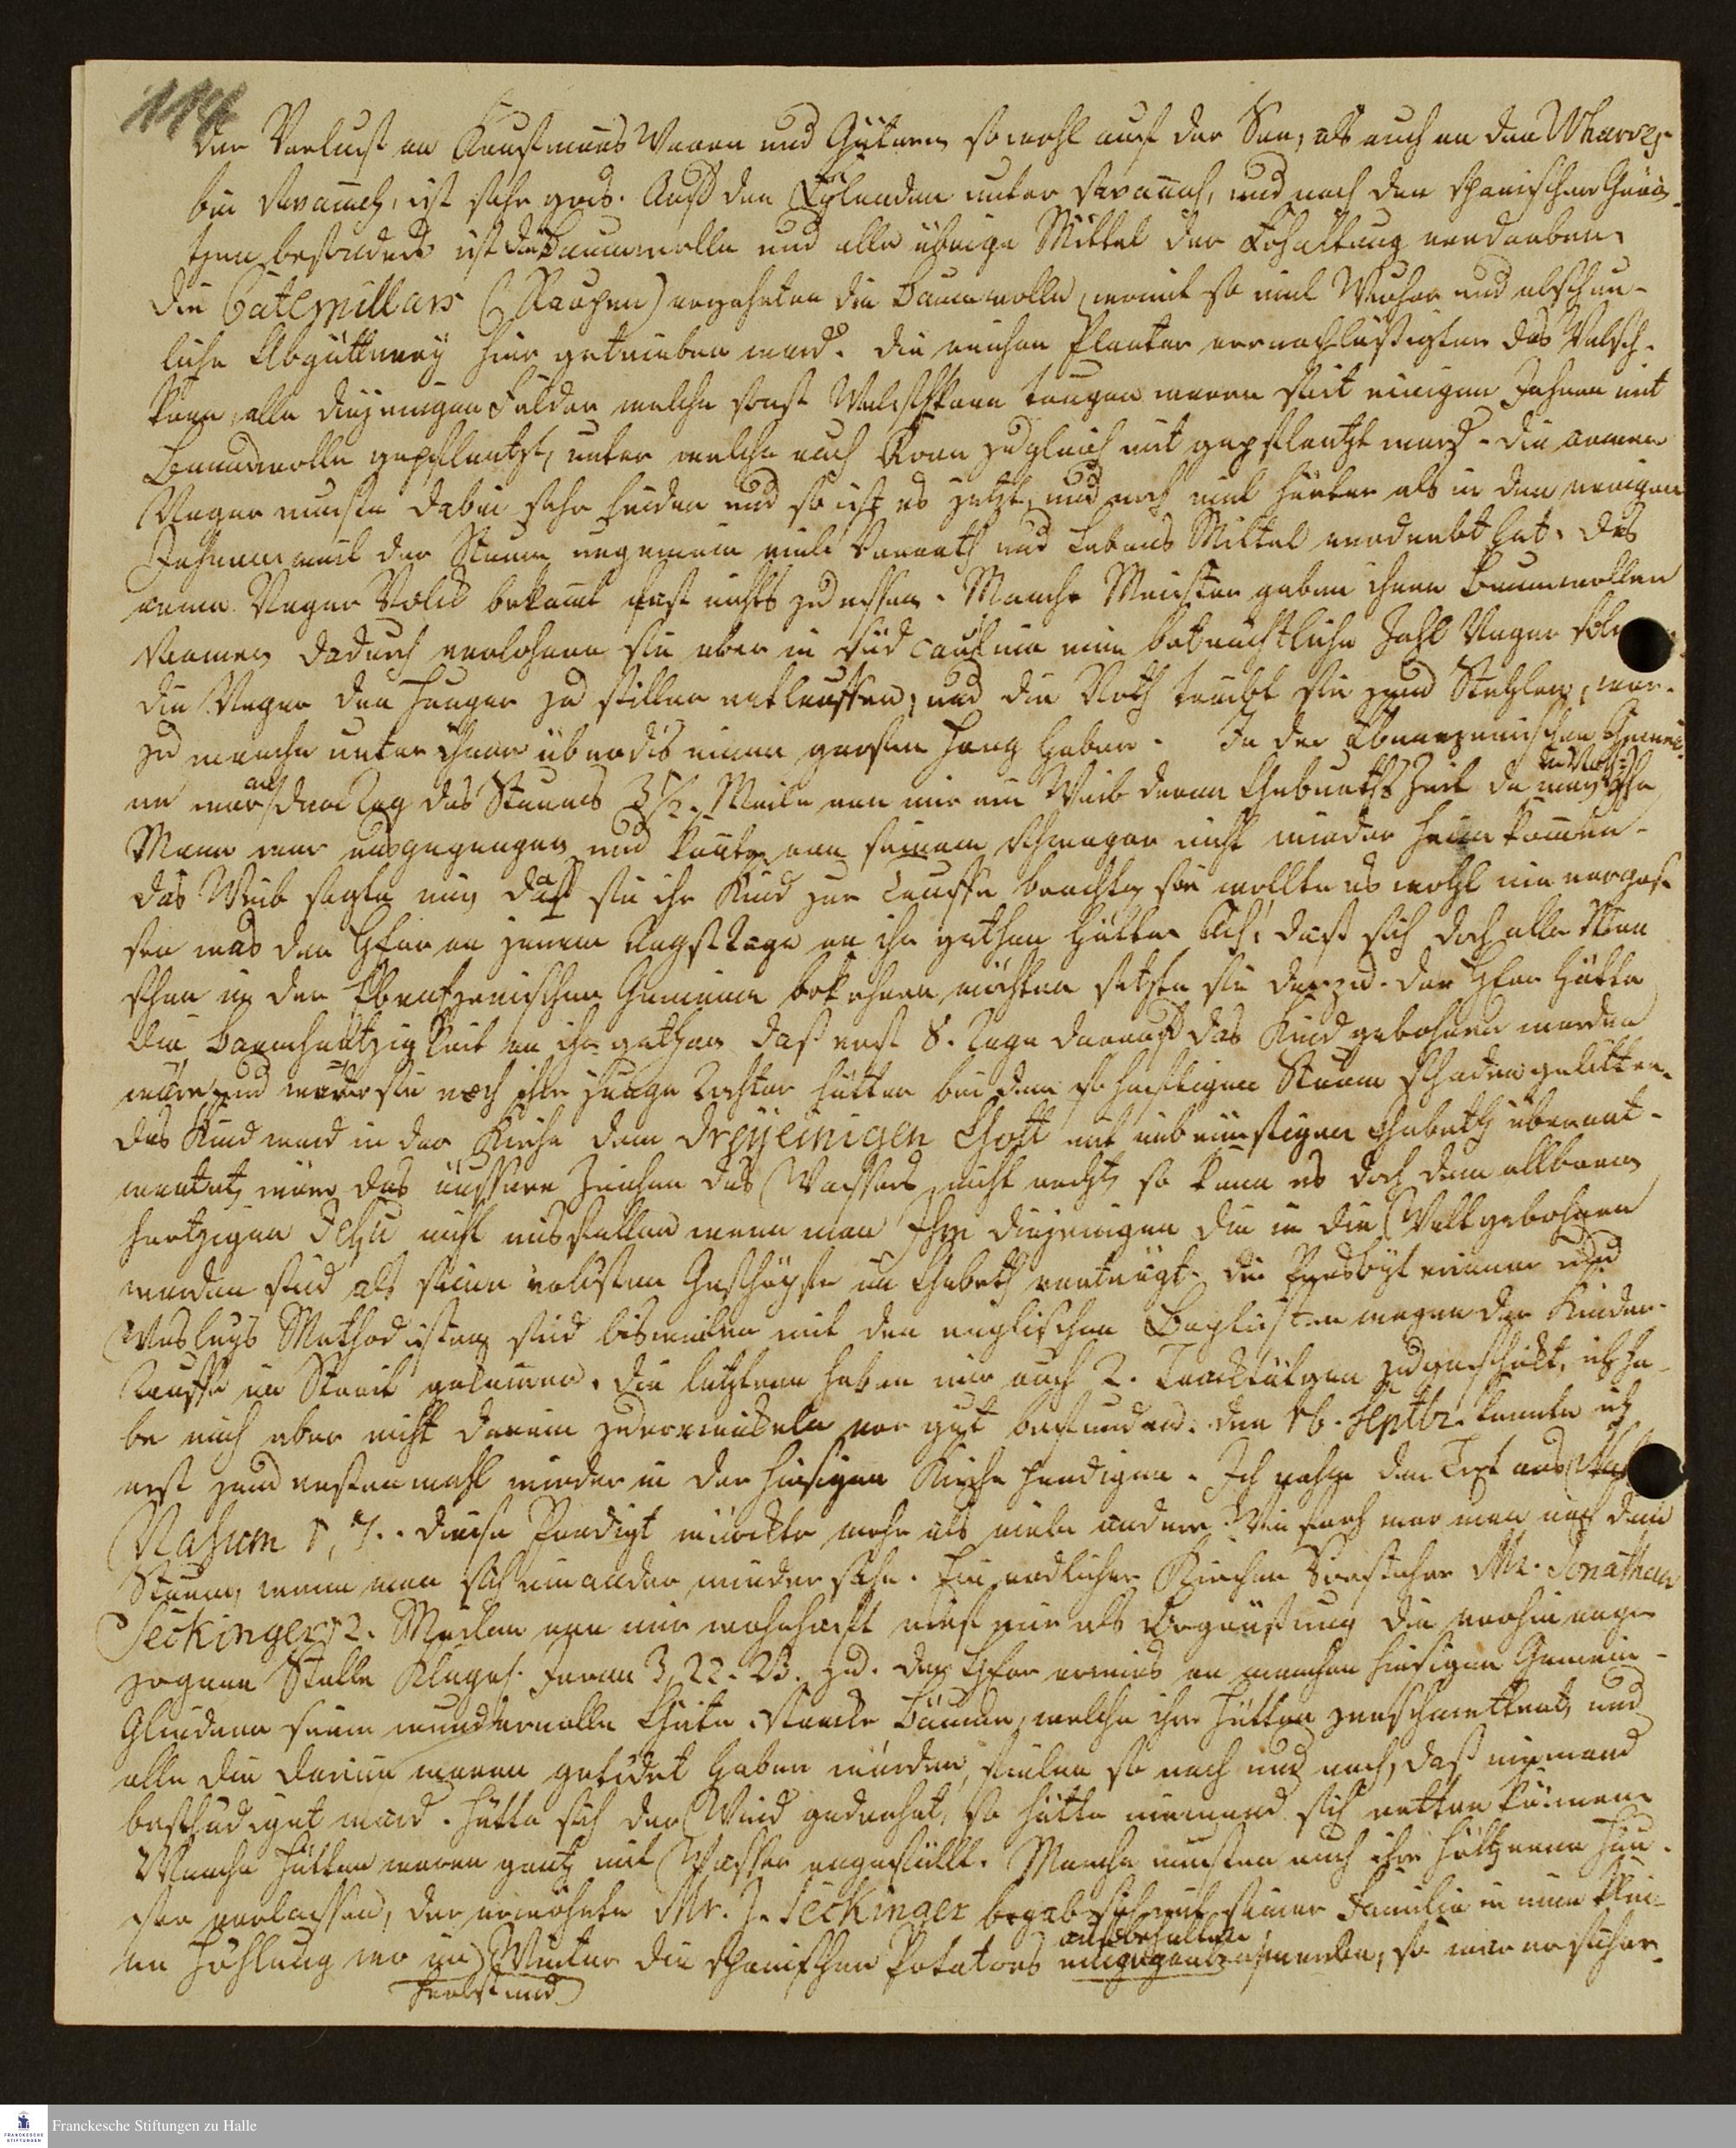 114
Der Verlust an Kaufmans Waren und Gütern so wohl auf der See, als auch an den Wharves
bei Savanah, ist sehr gros. Auf den Eylanden unter Savanah, und nach den spanischen Grän-
tzen besonders ist die Baumwolle und alle übrige Mittel der Erhaltung verdorben.
Die Caterpillars (Raupen) verzehrten die Baumwolle, womit so viel Wucher und abscheu-
liche Abgötterey hier getrieben ward. Die reichen Planter vernachläßigten das Welsch-
korn, alle diejenigen Felder welche sonst Welschkorn trugen waren seit einigen Jahren mit
Baumwolle gepflantzt, unter welche auch Korn zugleich mit gepflantzt ward. Die armen
Neger musten dabei sehr leiden und so ist es jetzt, und noch viel härter als in den vorigen
Jahren weil der Sturm ungemein viele Vorrath und Lebens Mittel verderbt hat. Das
arme Neger Volck bekomt fast nichts zu essen. Manche Meister gaben ihnen Baumwollen
Saamen dadurch verlohren sie aber in Süd Carolina eine beträchtliche Zahl Neger
die Neger den Hunger zu stillen entlauffen, und die Noth treibt sie zum Stehlen, wor-
zu manche unter ihnen überdis einen grosen Hang haben. In der Ebenezerischen Gemei-
ne war an dem Tag des Sturms 3½ Meile von mir ein Weib deren Geburths Zeit da war, ihr
Mann war ausgegangen und konte von seinem Schwager nicht wieder heim kommen.
Das Weib sagte mir, daß sie ihr Kind zur Tauffe brachte, sie wollte es wohl nie verges-
sen was der Herr an jenem Angsttage an ihr gethan hätte. Ach! daß sich doch alle Men
schen in der Ebenezerischen Gemeine bekehren möchten setzte sie darzu. Der Herr hätte
die Barmhertzigkeit an ihr gethan daß erst 8. Tage darauf das Kind gebohren worden
wäre, und weder sie noch ihre junge Tochter hätten bei dem so heftigen Sturm schaden gelitten.
Das Kind ward in der Kirche dem Dreyeinigen Gott mit inbrünstigen Gebeth überant-
wortet, wäre das äussere Zeichen des Wassers nicht recht, so kann es doch dem allbarm
hertzigen Jesu nicht misfallen wenn man Ihm diejenigen die in die Welt gebohren
worden sind als seine erlösten Geschöpfe im Gebeth vorträgt. Die Presbyterianer und
Wesleys Methodisten sind bisweilen mit den englischen Baptisten wegen der Kinder-
Tauffe in Streit gekommen. Die letztern haben mir auch 2. Tracktätgen zugeschickt, ich ha-
be mich aber nicht darein zu verwickeln vor gut befunden. Den 16. Septbr. konnte ich
erst zum erstenmahl wieder in der hiesigen Kirche predigen. Ich nahm den Text aus
Nahum 1, 7. Diese Predigt würckte mehr als viele andere. Wie froh war man nach dem
Sturm, wenn man sich einander wieder sahe. Ein redlicher Kirchen Vorsteher Mr. Jonathan
Seckinger 2. Meilen von mir wohnhaft rief mir als Begrüssung die vorhin ange-
zogene Stelle Klagel. Jerem 3, 22-23. zu. Der Herr erwies an manchen hiesigen Gemein-
Gliedern seine wundervolle Güte. Starcke Bäume, welche ihre Hütten zerschmettert, und
alle die darinn waren getödet haben würden, fielen so nach und nach, daß niemand
beschädiget ward. Hätte sich der Wind gedrehet, so hätte niemand sich retten können.
Manche Hütten waren gantz mit Wasser angefüllt. Manche musten auch ihre höltzerne Häu-
ser verlassen, der erwehnte Mr. J. Seckinger begab sich mit seiner Familie in eine klei-
ne Höhlung wo im Herbst und Winter die spanischen Potatoes aufbehalten werden, so war er sicher.
Franckesche Stiftungen zu Halle